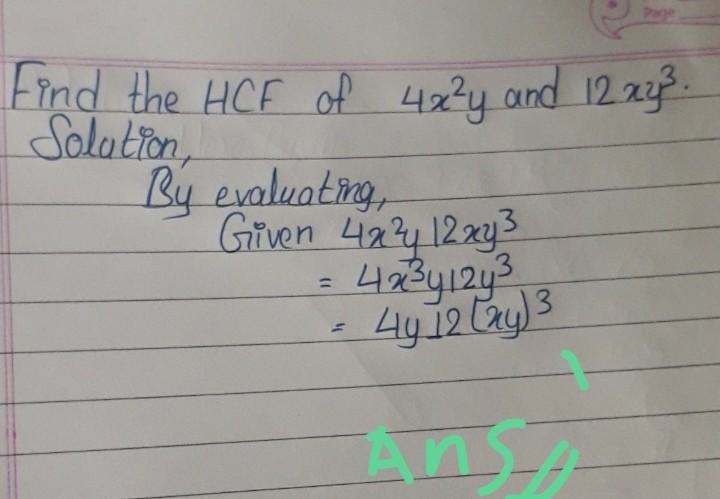 Page
Find the HCF of 4x²y and 12xy³.
Solution,
By evaluating,
Given 4x²y 12xy³
= 4x³y12y³
= 4y 12(xy)³
Ans